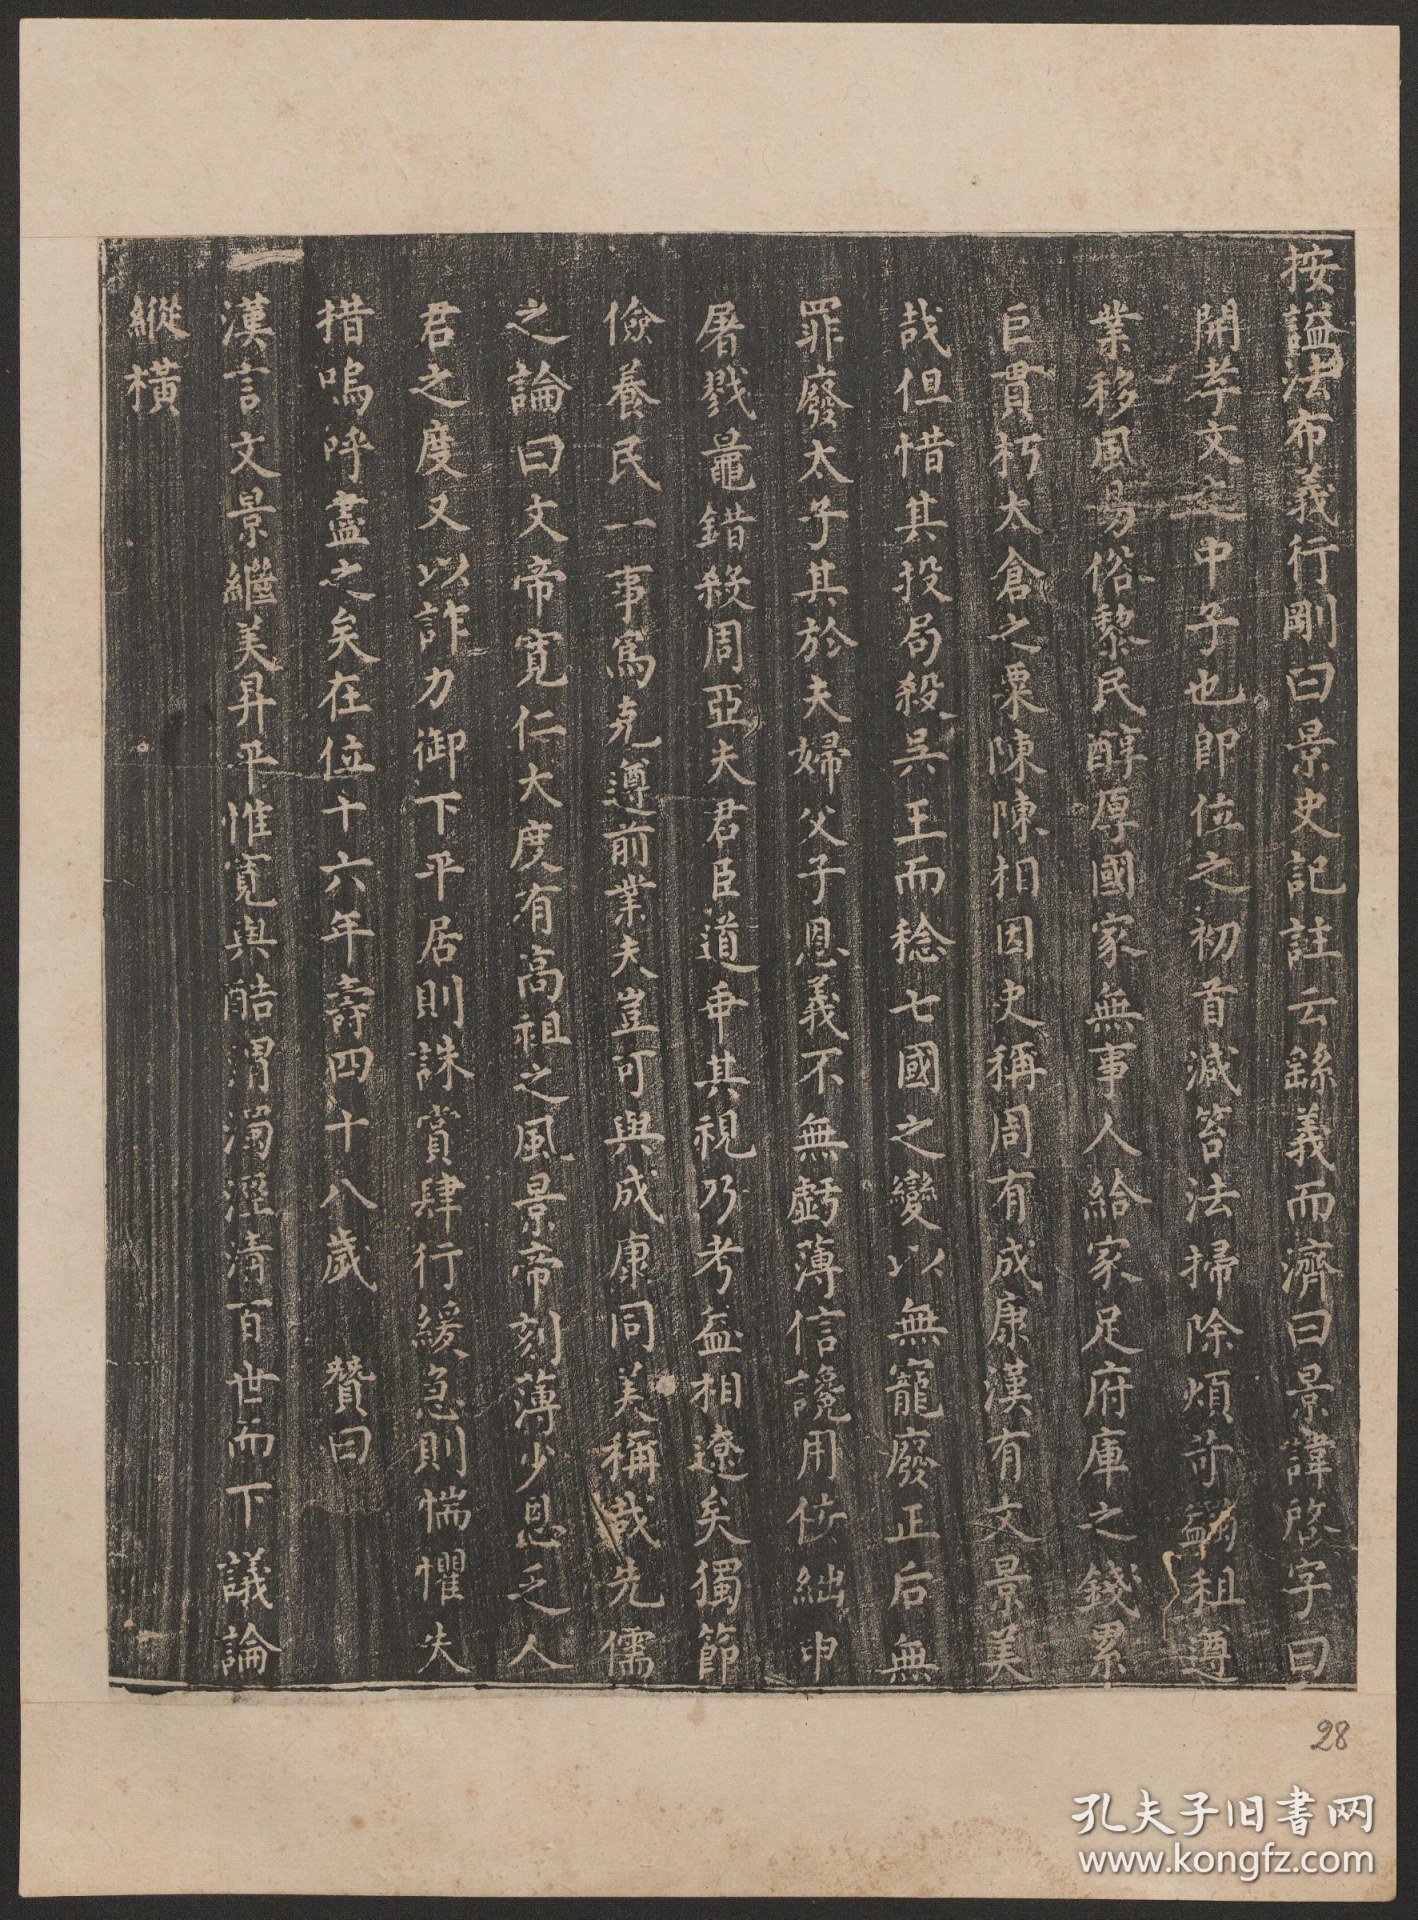 按謚法布義行剛曰景史記註云繇義而濟曰景諱啓字曰
開孝文之中子也即位之初首減笞法掃除煩苛蠲租遵
業移風易俗黎民醇厚國家無事人給家足府庫之錢累
巨貫朽太倉之粟陳陳相因史稱周有成康漢有文景美
哉但惜其投局殺吳王而稔七國之變以無寵廢正后無
罪廢太子其於夫婦父子恩義不無虧薄信讒用佞絀申
屠戮鼂錯殺周亞夫君臣道乖其視乃考益相遼矣獨節
儉養民一事爲克遵前業夫豈可與成康同美稱哉先儒
之論曰文帝寬仁大度有高祖之風景帝刻薄少恩乏人
君之度又以詐力御下平居則誅賞肆行緩急則惴懼失
措嗚呼盡之矣在位十六年壽四十八歲 贊曰
漢言文景繼美昇平惟寬與酷渭濁涇清百世而下議論
縱橫
28
孔夫子旧书网
www.kongfz.com